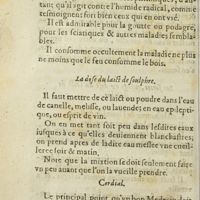 d'où il s'agit contre l'humide radical, comme
tesmoignent fort bien ceux qui en ont vsé.
Il est admirable pour la goutte ou podagre,
pour les sciatiques & autres maladies sembla-
bles.
Il consomme occultement la maladie ne plus
ne moins que le feu consomme le bois.
La dose du laict de soulphre.
Il faut mettre de ce laict ou poudre dans l'eau
de canelle, melisse, ou lauende, en eau apoplecti-
que, ou esprit de vin.
On en met tant soit peu dans lesdites eaux
iusques à ce qu'elles deuiennent blanchastres;
on prend apres de ladite eau meslee vne cueil-
leree soir & matin.
Note que la mixtion se doit seulement faire
vn peu auant que l'on la vueille prendre.
Cordial.
Le principal point qu'vn bon Medecin doit